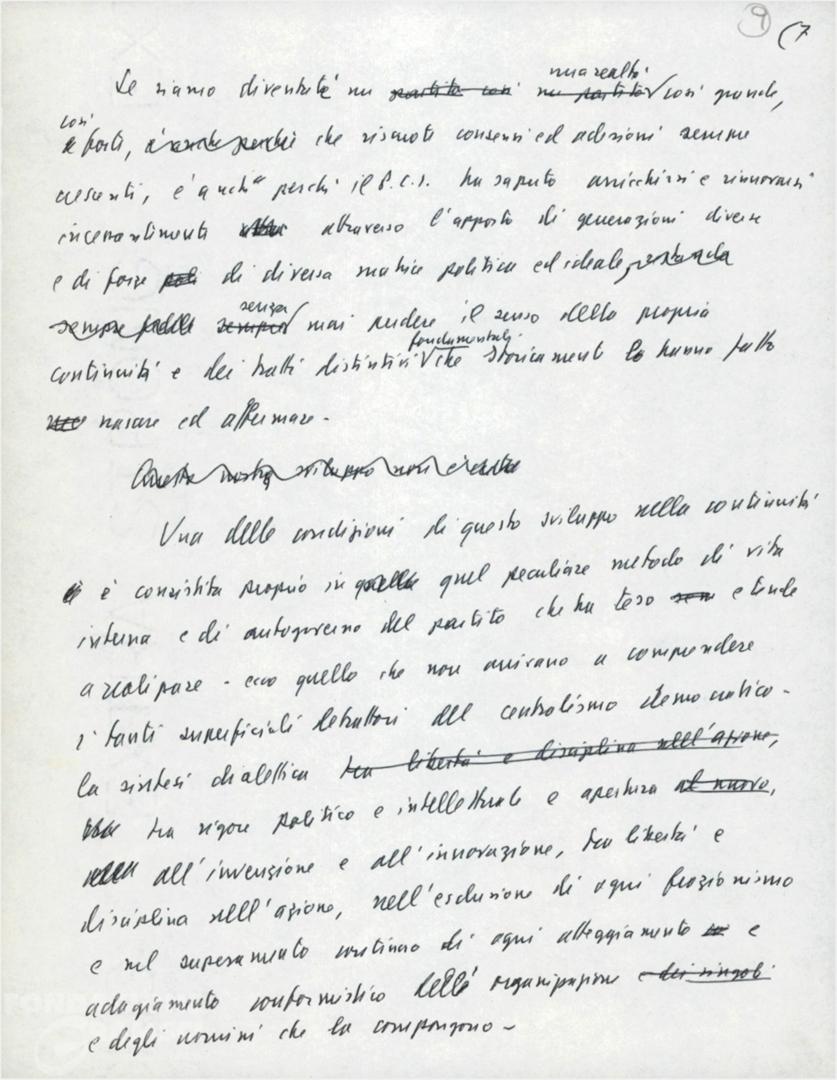 9 (7
una realtà
Se siamo diventati un partito così un partito così grande,
così
e forti, è anche perché che riscuote consensi ed adesioni sempre
crescenti, è anche perché il P.C.I. ha saputo arricchirsi e rinnovarsi
incessantemente attraverso l'apporto di generazioni diverse
e di forze poli di diversa matrice politica ed ideale, restando
senza
sempre sempre mai perdere il senso della propria
fondamentali
continuità e dei tratti distintivi che storicamente lo hanno fatto
nascere ed affermare.
Questo nostro sviluppo non
Una delle condizioni di questo sviluppo nella continuità
è consistita proprio in quella quel peculiare metodo di vita
interna e di autogoverno del partito che ha teso e tende
a realizzare - ecco quello che non arrivano a comprendere
i tanti superficiali detrattori del centralismo democratico -
la sintesi dialettica tra libertà e disciplina nell'azione,
tra rigore politico e intellettuale e apertura al nuovo,
all'invenzione e all'innovazione, tra libertà e
disciplina nell'azione, nell'esclusione di ogni frazionismo
e nel superamento continuo di ogni atteggiamento e
adagiamento conformistico dell' organizzazione e dei singoli
e degli uomini che la compongono -